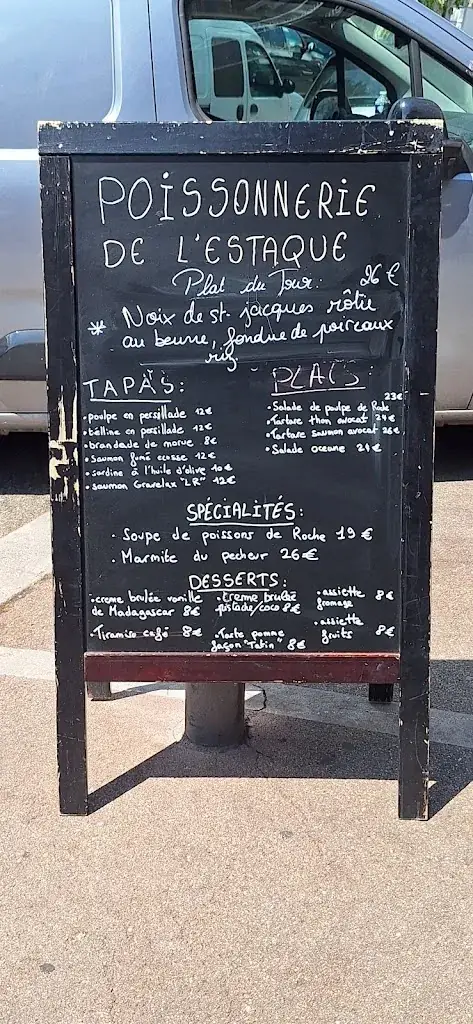 POISSONNERIE
DE L'ESTAQUE
Plat du Jour: 26 €
* Noix de st. jacques rôtie
au beurre, fondue de poireaux
riz
TAPAS:
• poulpe en persillade 12€
• telline en persillade 12€
• brandade de morue 8€
• Saumon fumé ecosse 12€
• sardine à l'huile d'olive 10€
• saumon Gravelax "LR" 12€
PLATS:
• Salade de poulpe de Roche 23€
• Tartare thon avocat 24€
• Tartare saumon avocat 26€
• Salade oceane 24€
SPÉCIALITÉS:
• Soupe de poissons de Roche 19 €
• Marmite du pecheur 26€
DESSERTS:
• creme brulée vanille
de Madagascar 8€
• Tiramisu café 8€
• creme brulée
pistache/coco 8€
• Tarte pomme
façon "Tatin" 8€
• assiette 8€
fromage
• assiette
fruits 8€